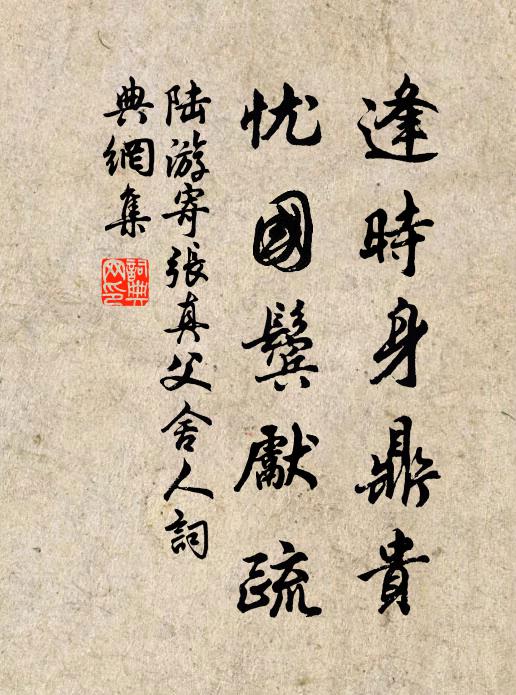 逢時身鼎貴
忧國鬓獻疏
陆游寄張真父舍人詞
典網集
詞典网印